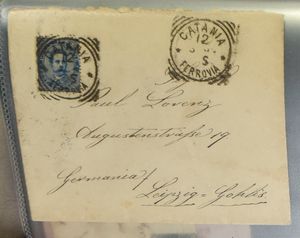 CATANIA
FERROVIA
CATANIA
12
S
FERROVIA
Paul Lorenz
Augustenstraße 19
Germania /
Leipzig-Gohlis